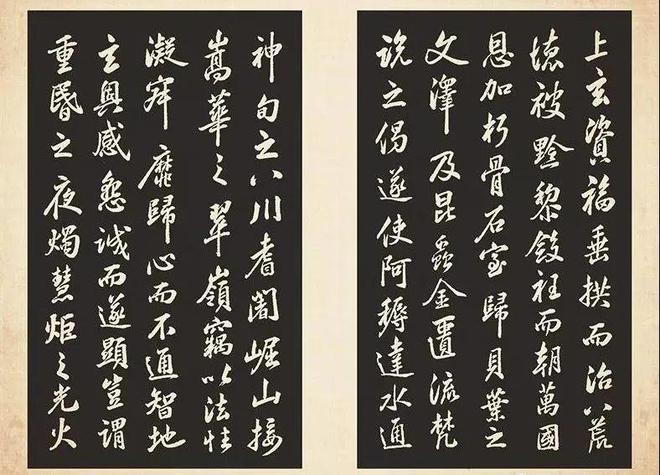 上玄資福垂拱而治八荒
德被黔黎斂衽而朝萬國
恩加朽骨石室歸貝葉之
文澤及昆蟲金匱流梵
說之偈遂使阿耨達水通
神甸之八川耆闍崛山接
嵩華之翠嶺竊以法性
凝寂靡歸心而不通智地
玄奧感懇誠而遂顯豈謂
重昬之夜燭慧炬之光火